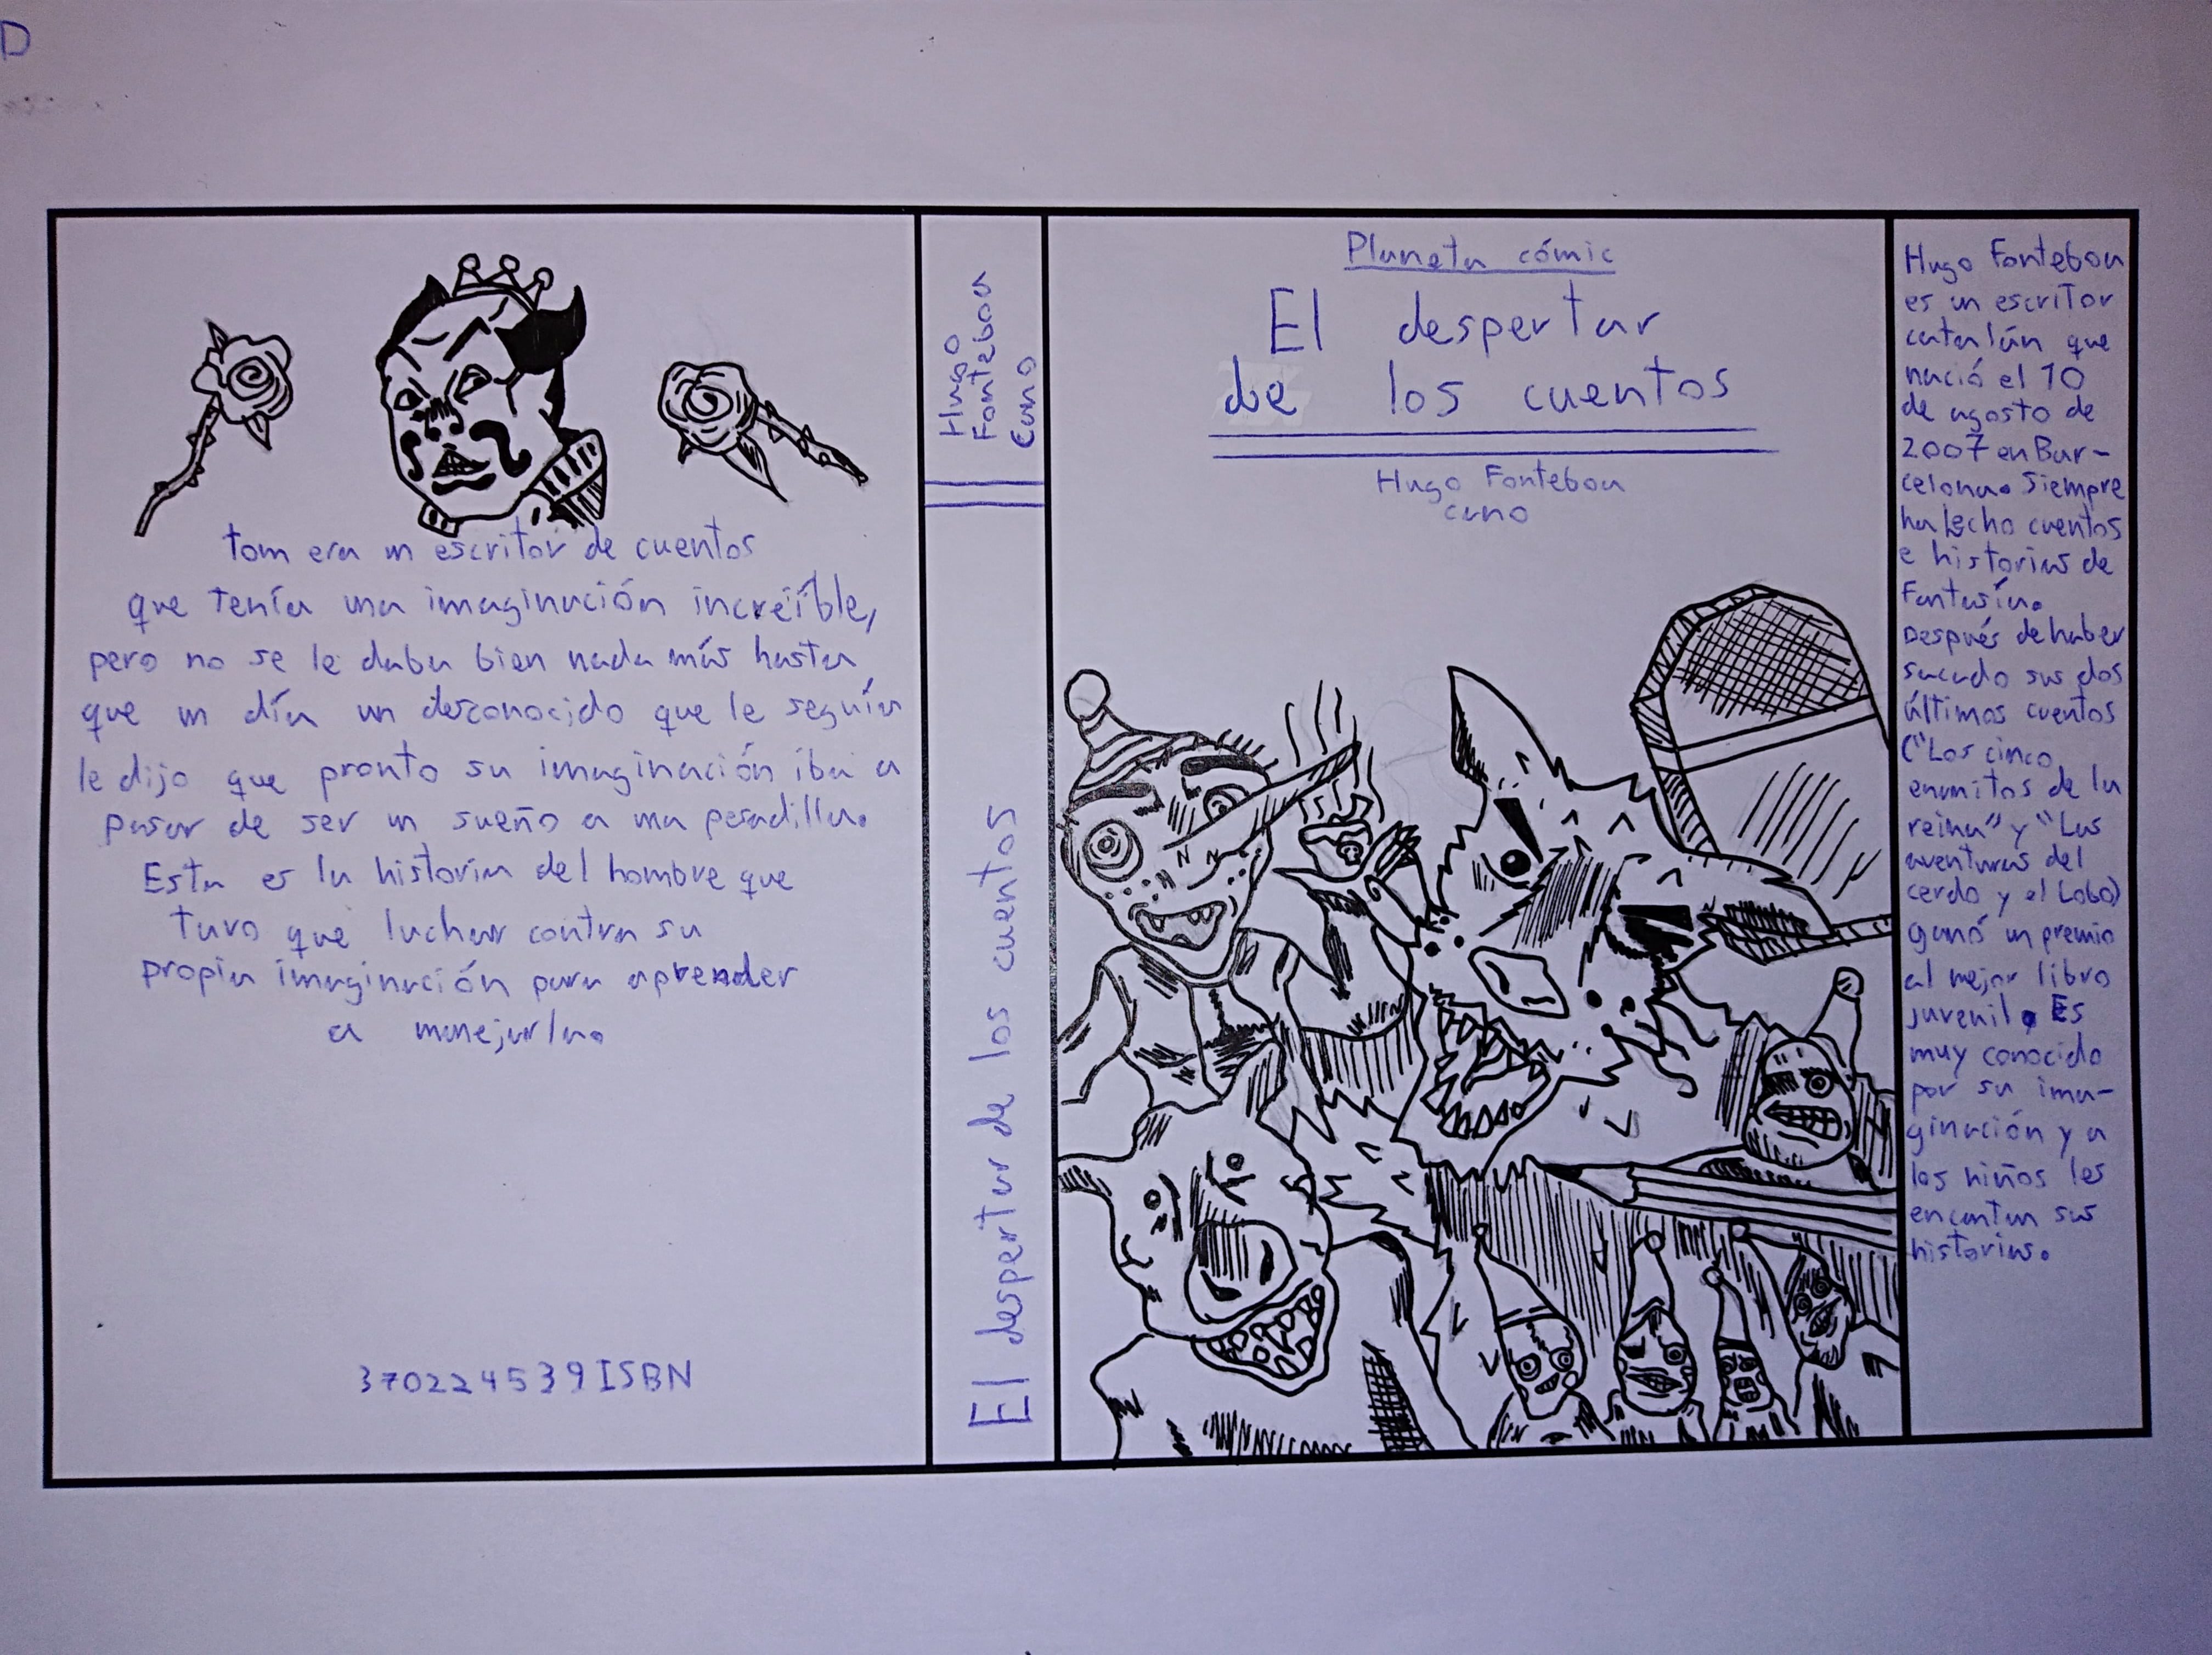 D
tom era un escritor de cuentos
que tenía una imaginación increíble,
pero no se le daba bien nada más hasta
que un día un desconocido que le seguía
le dijo que pronto su imaginación iba a
pasar de ser un sueño a una pesadilla.
Esta es la historia del hombre que
tuvo que luchar contra su
propia imaginación para aprender
a manejarla.
370224539ISBN
Hugo
Fonteboa
Cano
El despertar de los cuentos
Planeta cómic
El despertar
de los cuentos
Hugo Fonteboa
cano
Hugo Fonteboa
es un escritor
catalán que
nació el 10
de agosto de
2007 en Bar-
celona. Siempre
ha hecho cuentos
e historias de
Fantasía.
Después de haber
sacado sus dos
últimos cuentos
("Los cinco
enanitos de la
reina" y "Las
aventuras del
cerdo y el Lobo)
ganó un premio
al mejor libro
juvenil. Es
muy conocido
por su ima-
ginación y a
los niños les
encantan sus
historias.